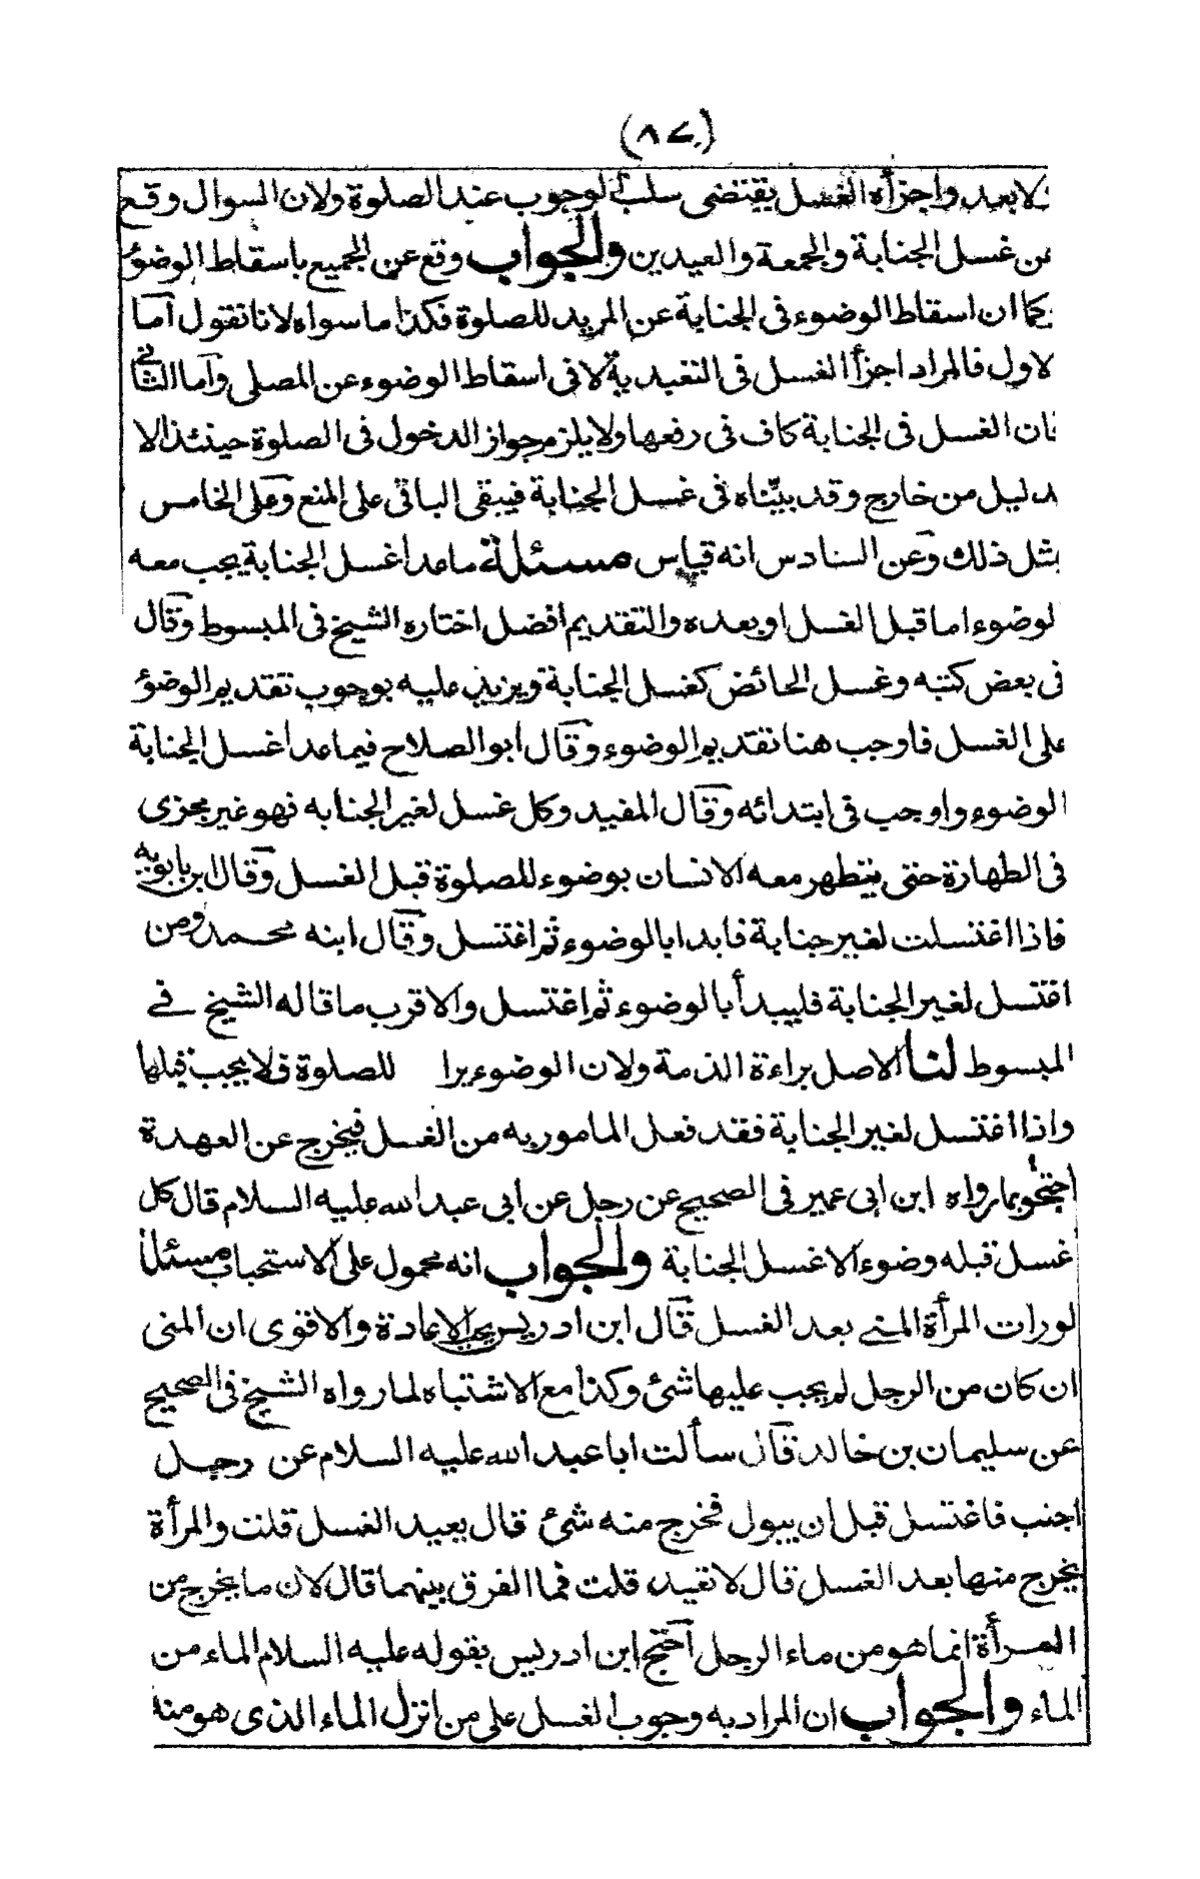 (٨٧)
لا بعد واجزأه الغسل يقتضى سلب الوجوب عند الصلوة ولان السوال وقع
من غسل الجنابة والجمعة والعيدين والجواب وقع عن الجميع باسقاط الوضؤ
كما ان اسقاط الوضوء فى الجناية عن المريد للصلوة فكذا ما سواه لانا نقول اما
لاول فالمراد اجزأ الغسل فى التعبدية لا فى اسقاط الوضوء عن المصلى واما الثانى
فان الغسل فى الجنابة كاف فى رفعها ولا يلزم جواز الدخول فى الصلوة حينئذ الا
بدليل من خارج وقد بيّناه فى غسل الجنابة فيبقى الباقى على المنع وعلى الخامس
مثل ذلك وعن السادس انه قياس مسئلة ما عدا غسل الجنابة يجب معه
لوضوء اما قبل الغسل او بعده والتقديم افضل اختاره الشيخ فى المبسوط وقال
فى بعض كتبه وغسل الحائض كغسل الجنابة ويزيد عليه بوجوب تقديم الوضؤ
على الغسل فاوجب هنا تقديم الوضوء وقال ابو الصلاح فيما عدا غسل الجنابة
الوضوء واوجب فى ابتدائه وقال المفيد وكل غسل لغير الجنابه فهو غير مجزى
فى الطهارة حتى يتطهر معه الانسان بوضوء للصلوة قبل الغسل وقال ابن بابويه
فاذا اغتسلت لغير جنابة فابدا بالوضوء ثم اغتسل وقال ابنه محمد ومن
اغتسل لغير الجنابة فليبدأ بالوضوء ثم اغتسل والاقرب ما قاله الشيخ فے
المبسوط لنا الاصل براءة الذمة ولان الوضوء يرا للصلوة فلا يجب قبلها
واذا اغتسل لغير الجنابة فقد فعل المامور به من الغسل فيخرج عن العهدة
احتجو بما رواه ابن ابى عمير فى الصحيح عن رجل عن ابى عبد الله عليه السلام قال كل
غسل قبله وضوء الا غسل الجنابة والجواب انه محمول على الاستحباب مسئلة
لو رات المرأة المنے بعد الغسل قال ابن ادريس يجب الاعادة والاقوى ان المنى
ان كان من الرجل لم يجب عليها شئ وكذا مع الاشتباه لما رواه الشيخ فى الصحيح
عن سليمان بن خالد قال سألت ابا عبد الله عليه السلام عن رجل
اجنب فاغتسل قبل ان يبول فخرج منه شئ قال يعيد الغسل قلت والمرأة
يخرج منها بعد الغسل قال لا تعيد قلت فما الفرق بينهما قال لان ما يخرج من
المرأة انما هو من ماء الرجل احتج ابن ادريس بقوله عليه السلام الماء من
الماء والجواب ان المراد به وجوب الغسل على من انزل الماء الذى هو منه